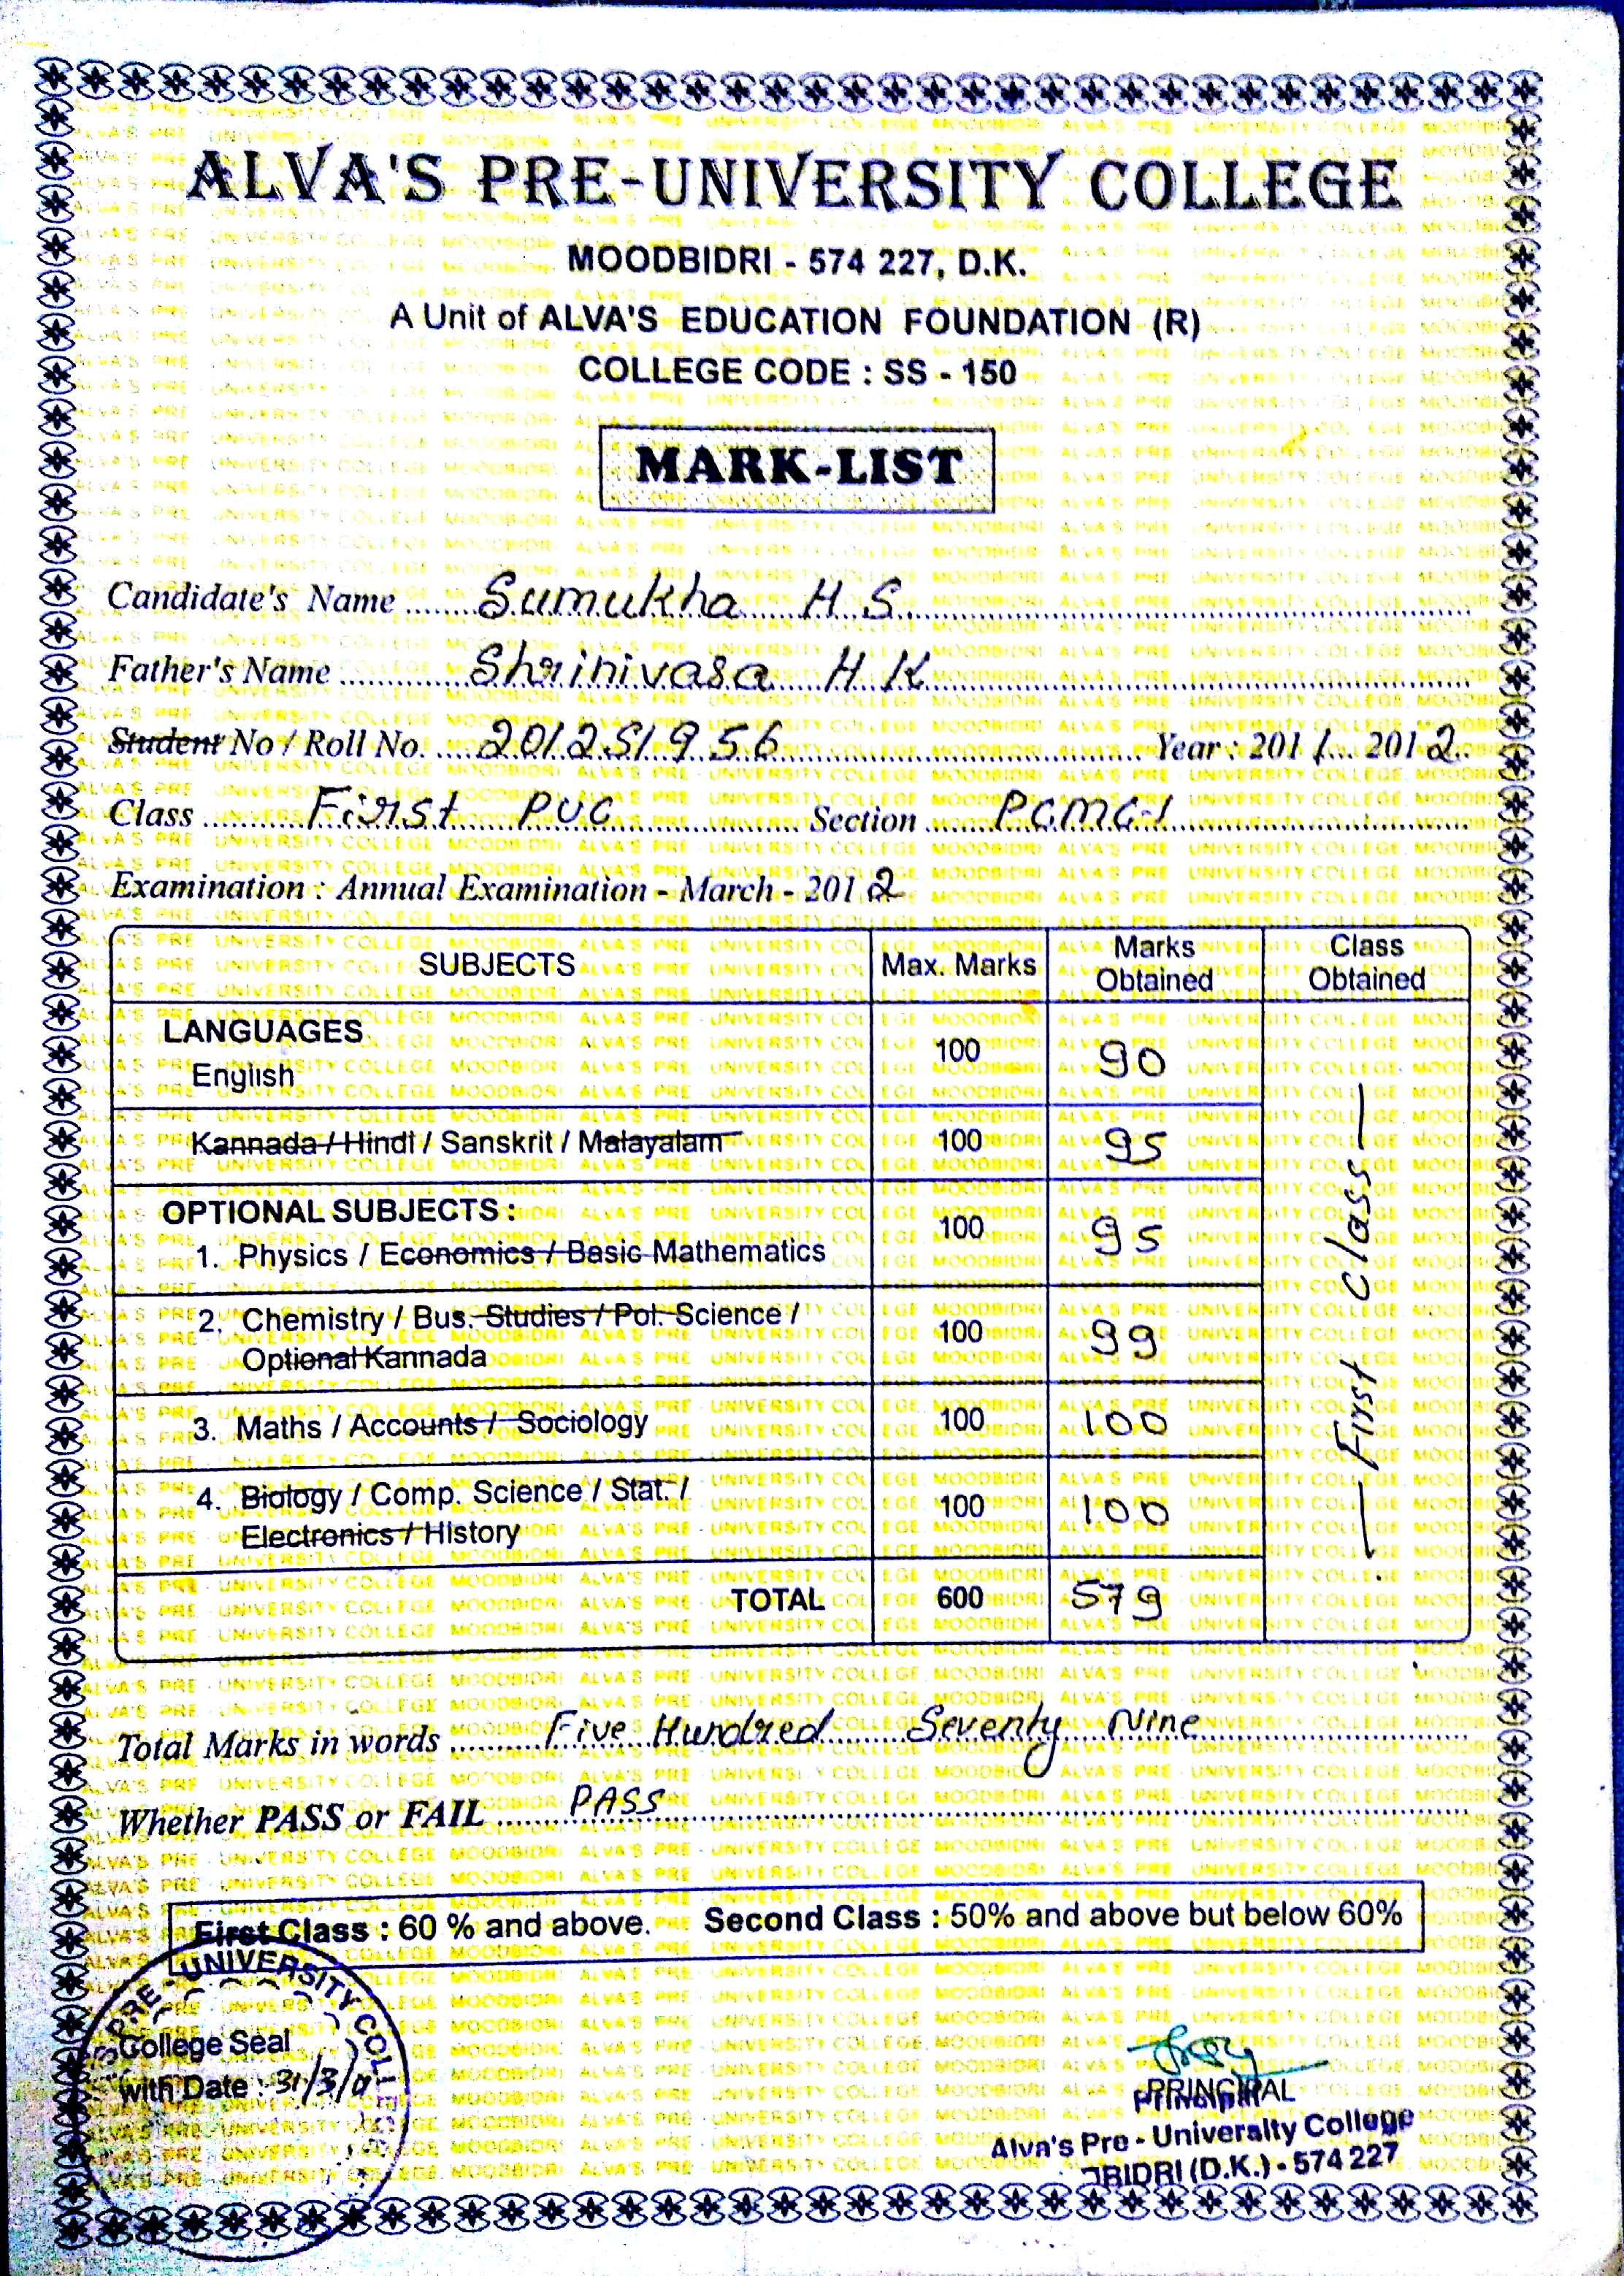 ALVA'S PRE-UNIVERSITY COLLEGE
MOODBIDRI - 574 227, D.K.
A Unit of ALVA'S EDUCATION FOUNDATION (R)
COLLEGE CODE : SS - 150
MARK-LIST
Candidate's Name Sumukha H S
Father's Name Shrinivasa H K
Student No / Roll No. 2012S1956 Year : 2011 2012
Class First PUC Section PCMC-1
Examination : Annual Examination - March - 2012
SUBJECTS Max. Marks Marks Obtained Class Obtained
LANGUAGES
English 100 90
Kannada / Hindi / Sanskrit / Malayalam 100 95
OPTIONAL SUBJECTS :
1. Physics / Economics / Basic Mathematics 100 95
2. Chemistry / Bus. Studies / Pol. Science /
Optional Kannada 100 99
3. Maths / Accounts / Sociology 100 100
4. Biology / Comp. Science / Stat. /
Electronics / History 100 100
TOTAL 600 579
First Class
Total Marks in words Five Hundred Seventy Nine
Whether PASS or FAIL PASS
First Class : 60 % and above. Second Class : 50% and above but below 60%
PRE - UNIVERSITY
College Seal
with Date : 31/3/
PRINCIPAL
Principal
Alva's Pre - University College
BIDRI (D.K.) - 574 227